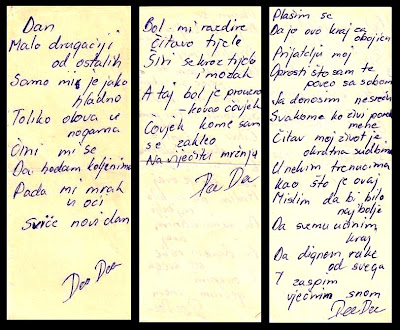 Dan
Malo drugačiji
od ostalih
Samo mi je jako
hladno
Toliko olova u
nogama
Čini mi se
Da hodam koljenima
Pada mi mrak
u oči
Sviće novi dan
Dee Dee
Bol mi razdire
Čitavo tijelo
Širi se kroz tijelo
i mozak
A taj bol je prouzro
-kovao čovjek
Čovjek kome sam
se zakleo
Na vječitu mržnju
Dee Dee
Plašim se
Da je ovo kraj za
obojicu
Prijatelju moj
Oprosti što sam te
poveo sa sobom
Ja donosim nesreću
Svakome ko živi pored
mene
Čitav moj život je
okrutna sudbina
U nekim trenucima
kao što je ovaj
Mislim da bi bilo
najbolje
Da svemu učinim
kraj
Da dignem ruke
od svega
I zaspim
vječnim snom
Dee Dee